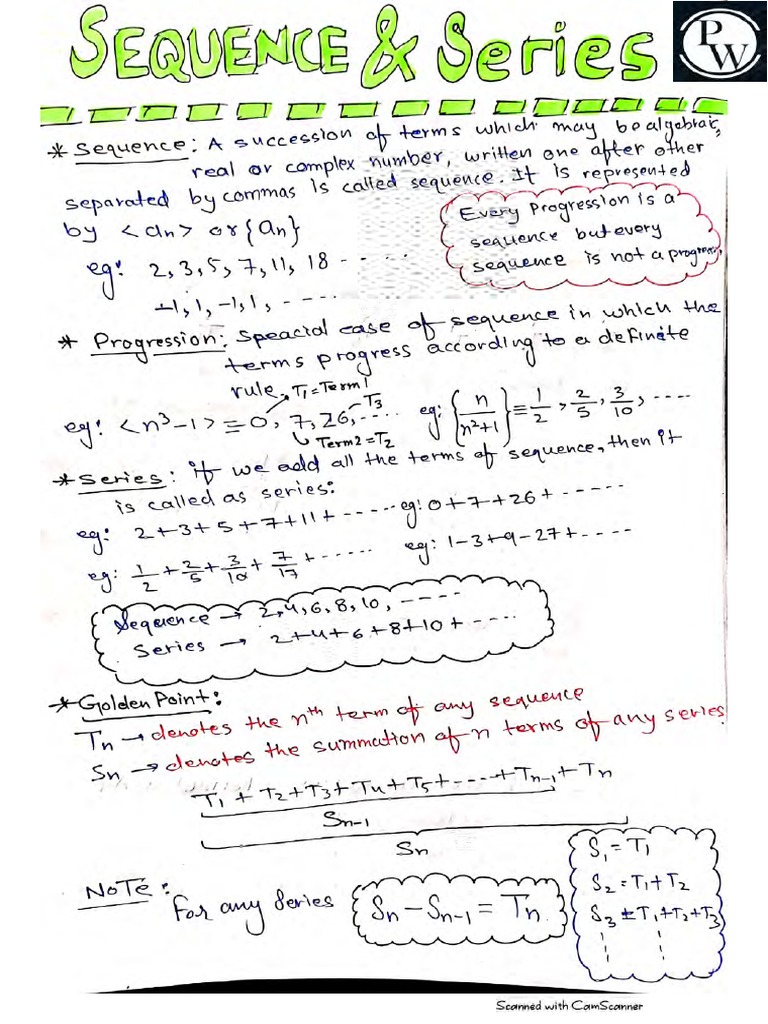 SEQUENCE & Series
PW
* Sequence: A succession of terms which may be algebraic,
real or complex number, written one after other
separated by commas is called sequence. It is represented
by <an> or {an}
Every Progression is a
sequence but every
sequence is not a progress
eg: 2, 3, 5, 7, 11, 18 - - - - -
-1, 1, -1, 1, - - - - -
* Progression: Speacial case of sequence in which the
terms progress according to a definite
rule. T1 = Term 1
T3
eg: <n³-1> = 0, 7, 26, - - - - eg: {n/n²+1} ≡ 1/2, 2/5, 3/10, - - - -
Term2 = T2
* Series: if we add all the terms of sequence, then it
is called as series:
eg: 2+3+5+7+11+ - - - - - eg: 0+7+26+ - - - - - -
eg: 1/2 + 2/5 + 3/10 + 7/17 + - - - - - eg: 1-3+9-27+ - - - -
Sequence → 2, 4, 6, 8, 10, - - - - -
Series → 2+4+6+8+10+ - - - -
* Golden Point:
Tn → denotes the nth term of any sequence
Sn → denotes the summation of n terms of any series.
T1 + T2 + T3 + T4 + T5 + - - - - + Tn-1 + Tn
Sn-1
Sn
NOTE:
For any Series
Sn - Sn-1 = Tn
S1 = T1
S2 = T1+T2
S3 = T1+T2+T3
Scanned with CamScanner